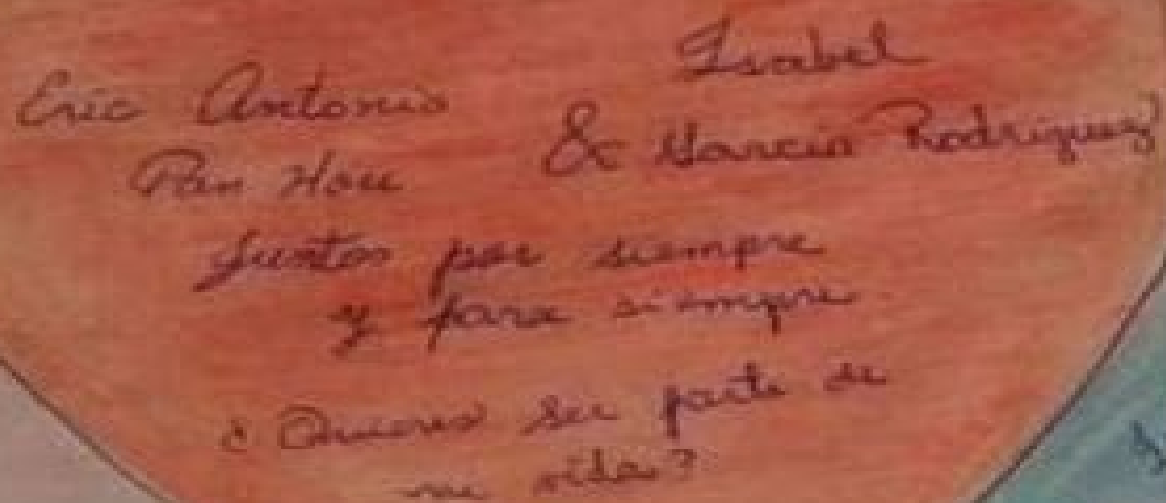 Eric Antonio
Pan Hou
Isabel
& Garcia Rodriguez
Juntos por siempre
y para siempre.
¿Quieres ser parte de
mi vida?